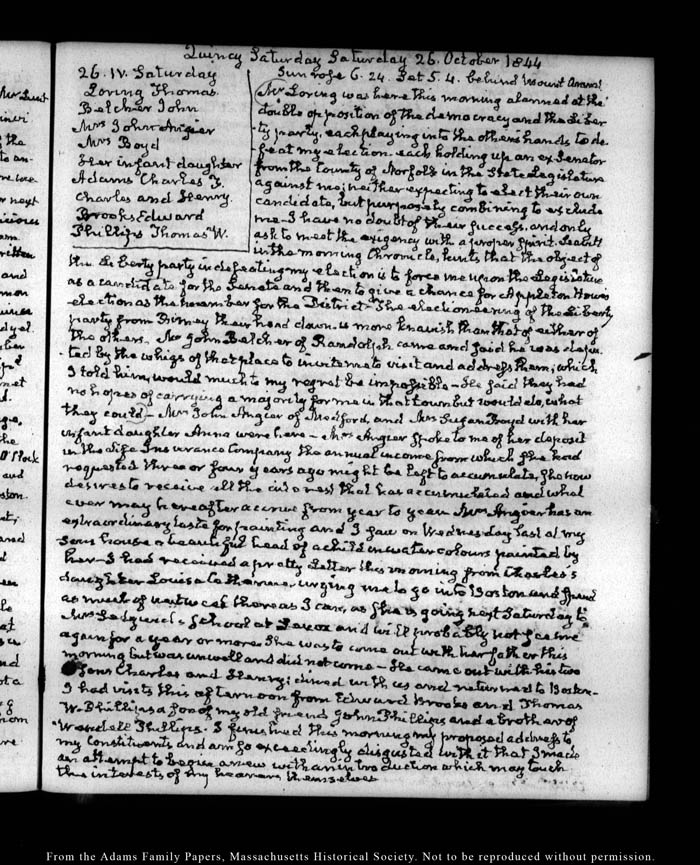 Quincy Saturday Saturday 26. October 1844
26. IV. Saturday
Loring Thomas
Belcher John
Mrs John Angier
Mrs Boyd
Her infant daughter
Adams Charles F.
Charles and Henry.
Brooks Edward
Phillips Thomas W.
Sun rose 6. 24. Set 5. 4. behind Mount
Mr Loring was here this morning alarmed at the
double opposition of the democracy and the Liber-
ty party, each playing into the others hands to de-
feat my election. each holding up an ex Senator
from the County of Norfolk in the State Legislature
against me; neither expecting to elect their own
candidate, but purposely combining to exclude
me. I have no doubt of their success, and only
ask to meet the exigency with a proper spirit. Leavitt
in the morning Chronicle, hints that the object of
the Liberty party in defeating my election is to force me upon the Legislature
as a candidate for the Senate and then to give a chance for Appleton Howe's
election as the member for the District. The electioneering of the Liberty
party from Birney their head down is more knavish than that of either of
the others. Mr John Belcher of Randolph came and said he was depu-
ted by the whigs of that place to invite me to visit and address them; which
I told him, would much to my regret be impossible – He said they had
no hopes of carrying a majority for me in that town but would do, what
they could – Mrs John Angier of Medford, and Mrs Susan Boyd with her
infant daughter Anna were here – Mrs Angier spoke to me of her deposit
in the Life Insurance Company the annual income from which she had
requested three or four years ago might be left to accumulate, she now
desires to receive all the interest that has accumulated and what
ever may hereafter accrue from year to year. Mrs Angier has an
extraordinary taste for painting and I saw on Wednesday last at my
sons house a beautiful head of a child in water colours painted by
her – I had received a pretty Letter this morning from Charles's
daughter Louisa Catherine, urging me to go into Boston and spend
as much of my time there as I can, as she is going next Saturday to
Mrs Sedgwick's School at Lenox and will probably not see me
again for a year or more. She was to come out with her father this
morning but was unwell and did not come – He came out with his two
Sons Charles and Henry; dined with us and returned to Boston –
I had visits this afternoon from Edward Brooks and Thomas
W. Phillips a son of my old friend John Phillips and a brother of
Wendell Phillips. I finished this morning my proposed address to
my Constituents and am so exceedingly disgusted with it that I made
an attempt to begin anew with an introduction which may touch
the interests of my hearers themselves
From the Adams Family Papers, Massachusetts Historical Society. Not to be reproduced without permission.